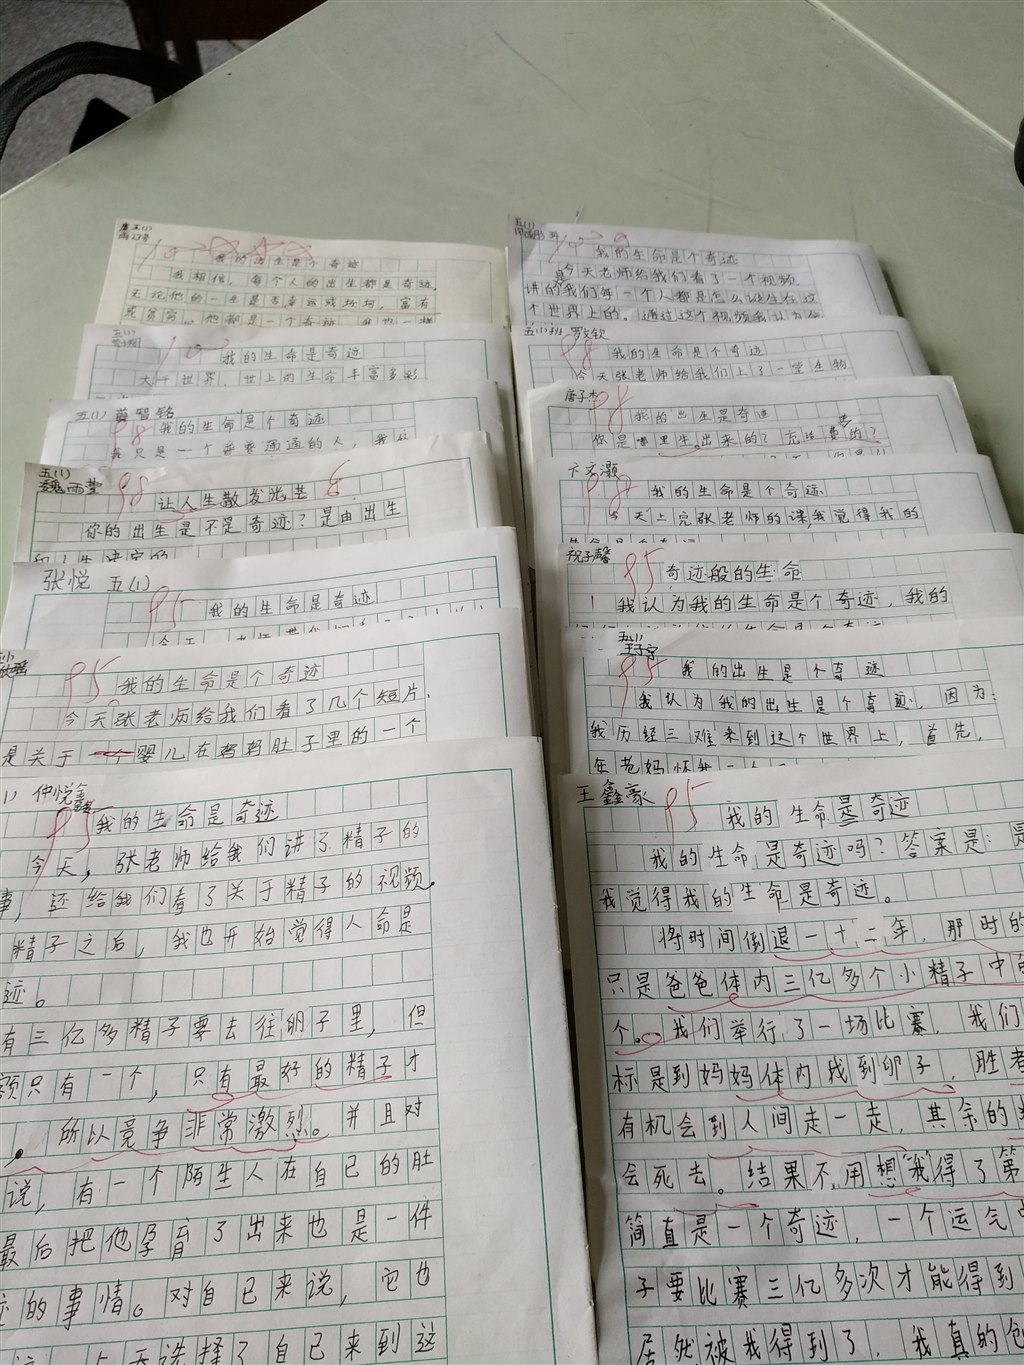 五(1)
100
我的出生是个奇迹
我相信，每个人的出生都是奇迹，
无论他的一生是否幸运或坎坷，富有
或贫穷，他都是一个奇迹，我也一样
五(1)
100
我的生命是奇迹
大千世界，世上的生命丰富多彩
五(1) 黄智铭
98 我的生命是个奇迹
我只是一个普普通通的人，我
五(1)
魏雨莹
98
让人生散发光芒
你的出生是不是奇迹？是由出生
和人生决定的
张悦 五(1)
95
我的生命是奇迹
今天
95 我的生命是个奇迹
今天张老师给我们看了几个短片，
是关于一个婴儿在妈妈肚子里的一个
仲悦鑫
95 我的生命是奇迹
今天，张老师给我们讲了精子的
事，还给我们看了关于精子的视频，
精子之后，我也开始觉得人命是
迹。
有三亿多精子要去往卵子里，但
额只有一个，只有最好的精子才
，所以竞争非常激烈。并且对
说，有一个陌生人在自己的肚
最后把他孕育了出来也是一件
的事情。对自己来说，它也
上天选择了自己来到这
五(1)
100
我的生命是个奇迹
今天老师给我们看了一个视频
讲的是我们每一个人都是怎么诞生在这
个世界上的。通过这个视频我认为
五(1)班 罗文钦
98 我的生命是个奇迹
今天张老师给我们上了一堂生物
唐子杰
98 我的出生是奇迹
你是哪里生出来的？充话费的？
卞文灏
98 我的生命是个奇迹
今天上完张老师的课，我觉得我的
生命是个奇迹
祝子馨
95 奇迹般的生命
我认为我的生命是个奇迹，我的
五(1)
王子宁
95 我的出生是个奇迹
我认为我的出生是个奇迹，因为：
我历经三难来到这个世界上，首先，
王鑫豪
95 我的生命是奇迹
我的生命是奇迹吗？答案是：是
我觉得我的生命是奇迹。
将时间倒退一十二年，那时的
只是爸爸体内三亿多个小精子中的
个。我们举行了一场比赛，我们
标是到妈妈体内找到卵子，胜者
有机会到人间走一走，其余的
会死去。结果不用想“我”得了第
简直是一个奇迹，一个运气
子要比赛三亿多次才能得到
居然被我得到了，我真的